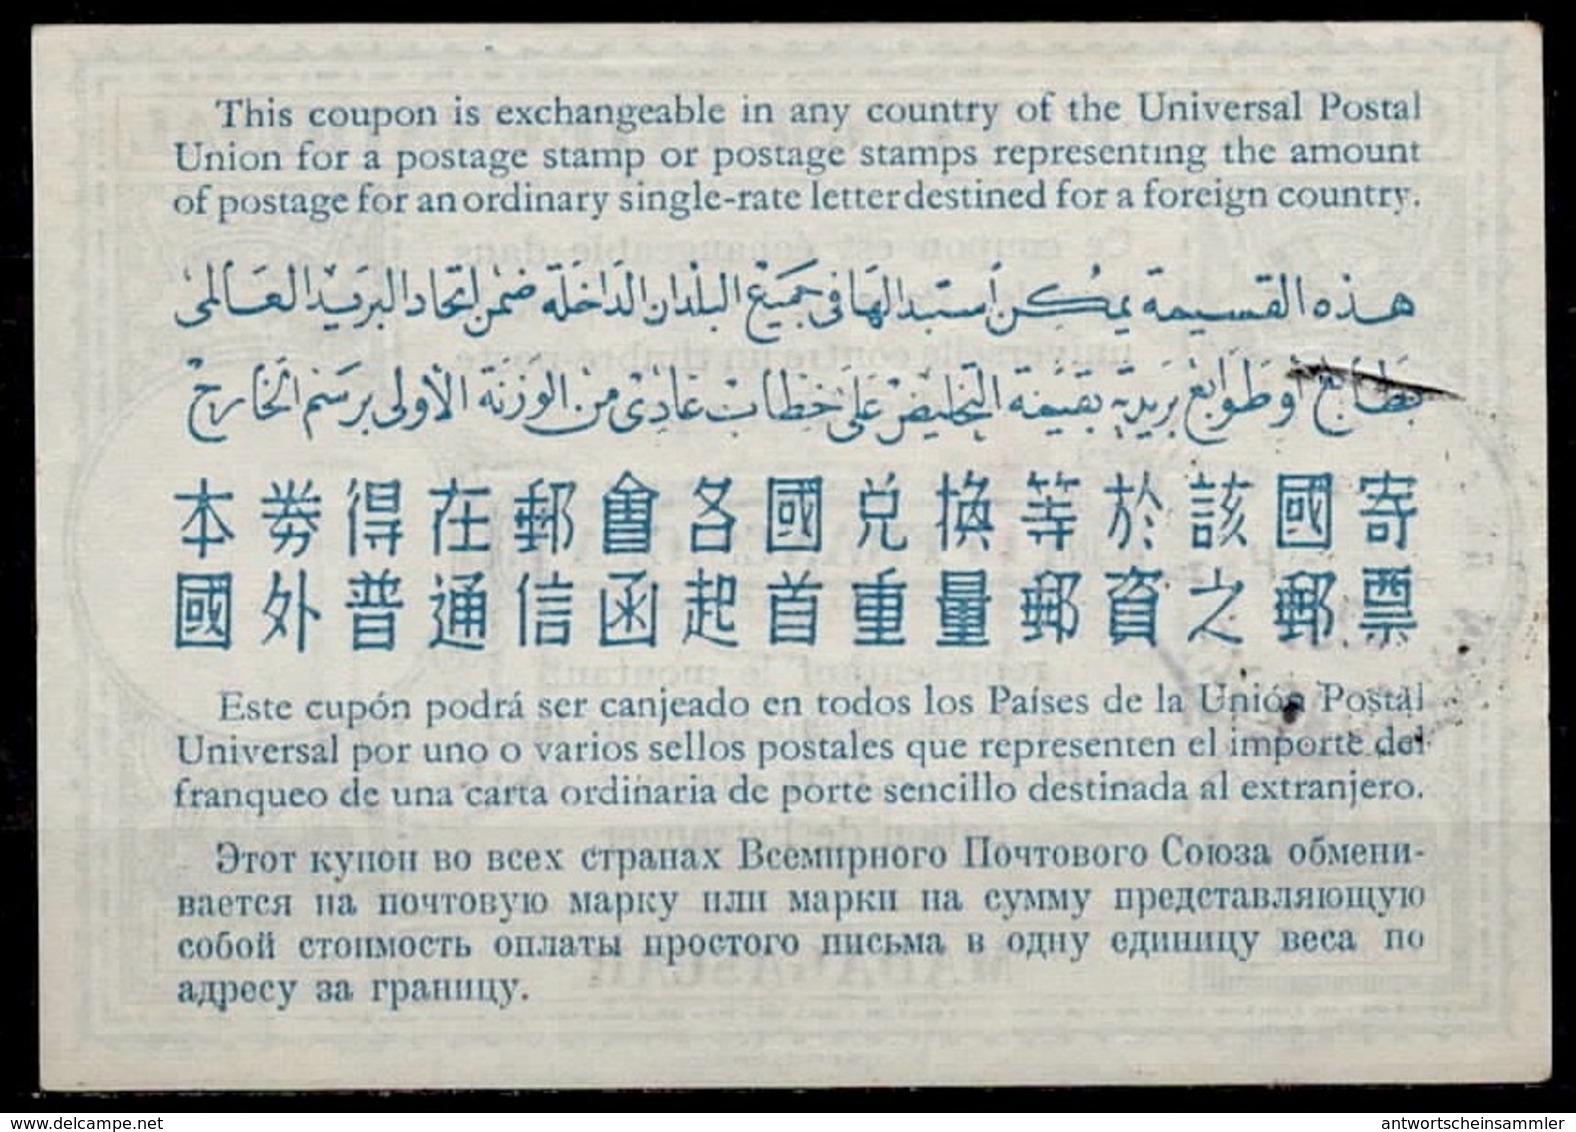 This coupon is exchangeable in any country of the Universal Postal
Union for a postage stamp or postage stamps representing the amount
of postage for an ordinary single-rate letter destined for a foreign country.
هذه القسيمة يمكن استبدالها في جميع البلدان الداخلة ضمن اتحاد البريد العالمى
بطابع او طوابع بريدية بقيمة التخليص على خطاب عادى من الوزنة الأولى برسم الخارج
本券得在郵會各國兌換等於該國寄
國外普通信函起首重量郵資之郵票
Este cupón podrá ser canjeado en todos los Países de la Unión Postal
Universal por uno o varios sellos postales que representen el importe del
franqueo de una carta ordinaria de porte sencillo destinada al extranjero.
Этот купон во всех странах Всемирного Почтового Союза обмени-
вается на почтовую марку или марки на сумму представляющую
собой стоимость оплаты простого письма в одну единицу веса по
адресу за границу.
MADAGASCAR
delcampe.net
antwortscheinsammler